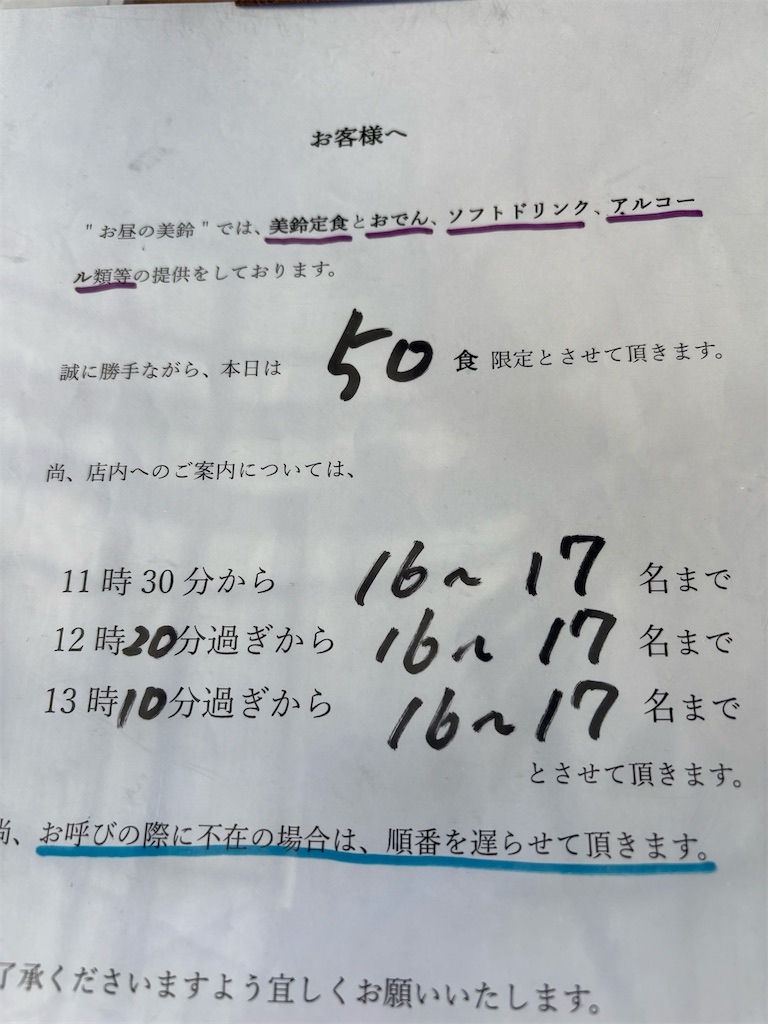 お客様へ
"お昼の美鈴"では、美鈴定食とおでん、ソフトドリンク、アルコー
ル類等の提供をしております。
誠に勝手ながら、本日は 50 食 限定とさせて頂きます。
尚、店内へのご案内については、
11時30分から 16〜17 名まで
12時20分過ぎから 16〜17 名まで
13時10分過ぎから 16〜17 名まで
とさせて頂きます。
尚、お呼びの際に不在の場合は、順番を遅らせて頂きます。
了承くださいますよう宜しくお願いいたします。